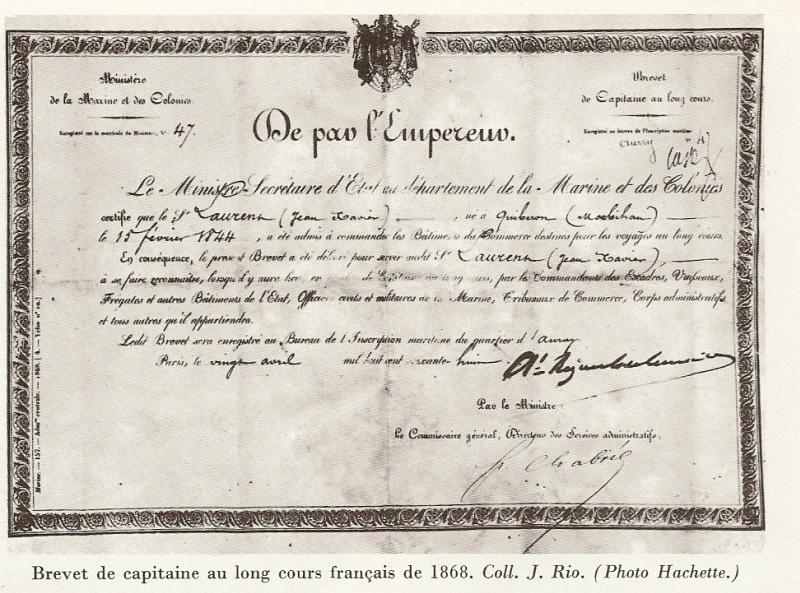 Ministère
de la Marine et des Colonies.
Enregistré sur la matricule du Ministère, N° 47.
Brevet
de Capitaine au long cours.
Enregistré au bureau de l'Inscription maritime
Auray N° 47
De par l'Empereur.
Le Ministre Secrétaire d'Etat au département de la Marine et des Colonies
certifie que le Sr Laurent (Jean Xavier), né à Quiberon (Morbihan)
le 15 février 1844, a été admis à commander les Bâtimens du Commerce destinés pour les voyages au long cours.
En conséquence, le présent Brevet a été délivré pour servir audit Sr Laurent (Jean Xavier),
à se faire reconnaître, lorsqu'il y aura lieu, en de Capitaine au long cours, par les Commandants des Escadres, Vaisseaux,
Frégates et autres Bâtiments de l'Etat, Officiers civils et militaires de la Marine, Tribunaux de Commerce, Corps administratifs
et tous autres qu'il appartiendra.
Ledit Brevet sera enregistré au Bureau de l'Inscription maritime du quartier d'Auray.
Paris, le vingt avril mil huit cent soixante-huit
Par le Ministre:
Le Commissaire général, Directeur des Services administratifs,
Chabrié
Marine. — 157. — Adm.on centrale. — 1868.
Brevet de capitaine au long cours français de 1868. Coll. J. Rio. (Photo Hachette.)